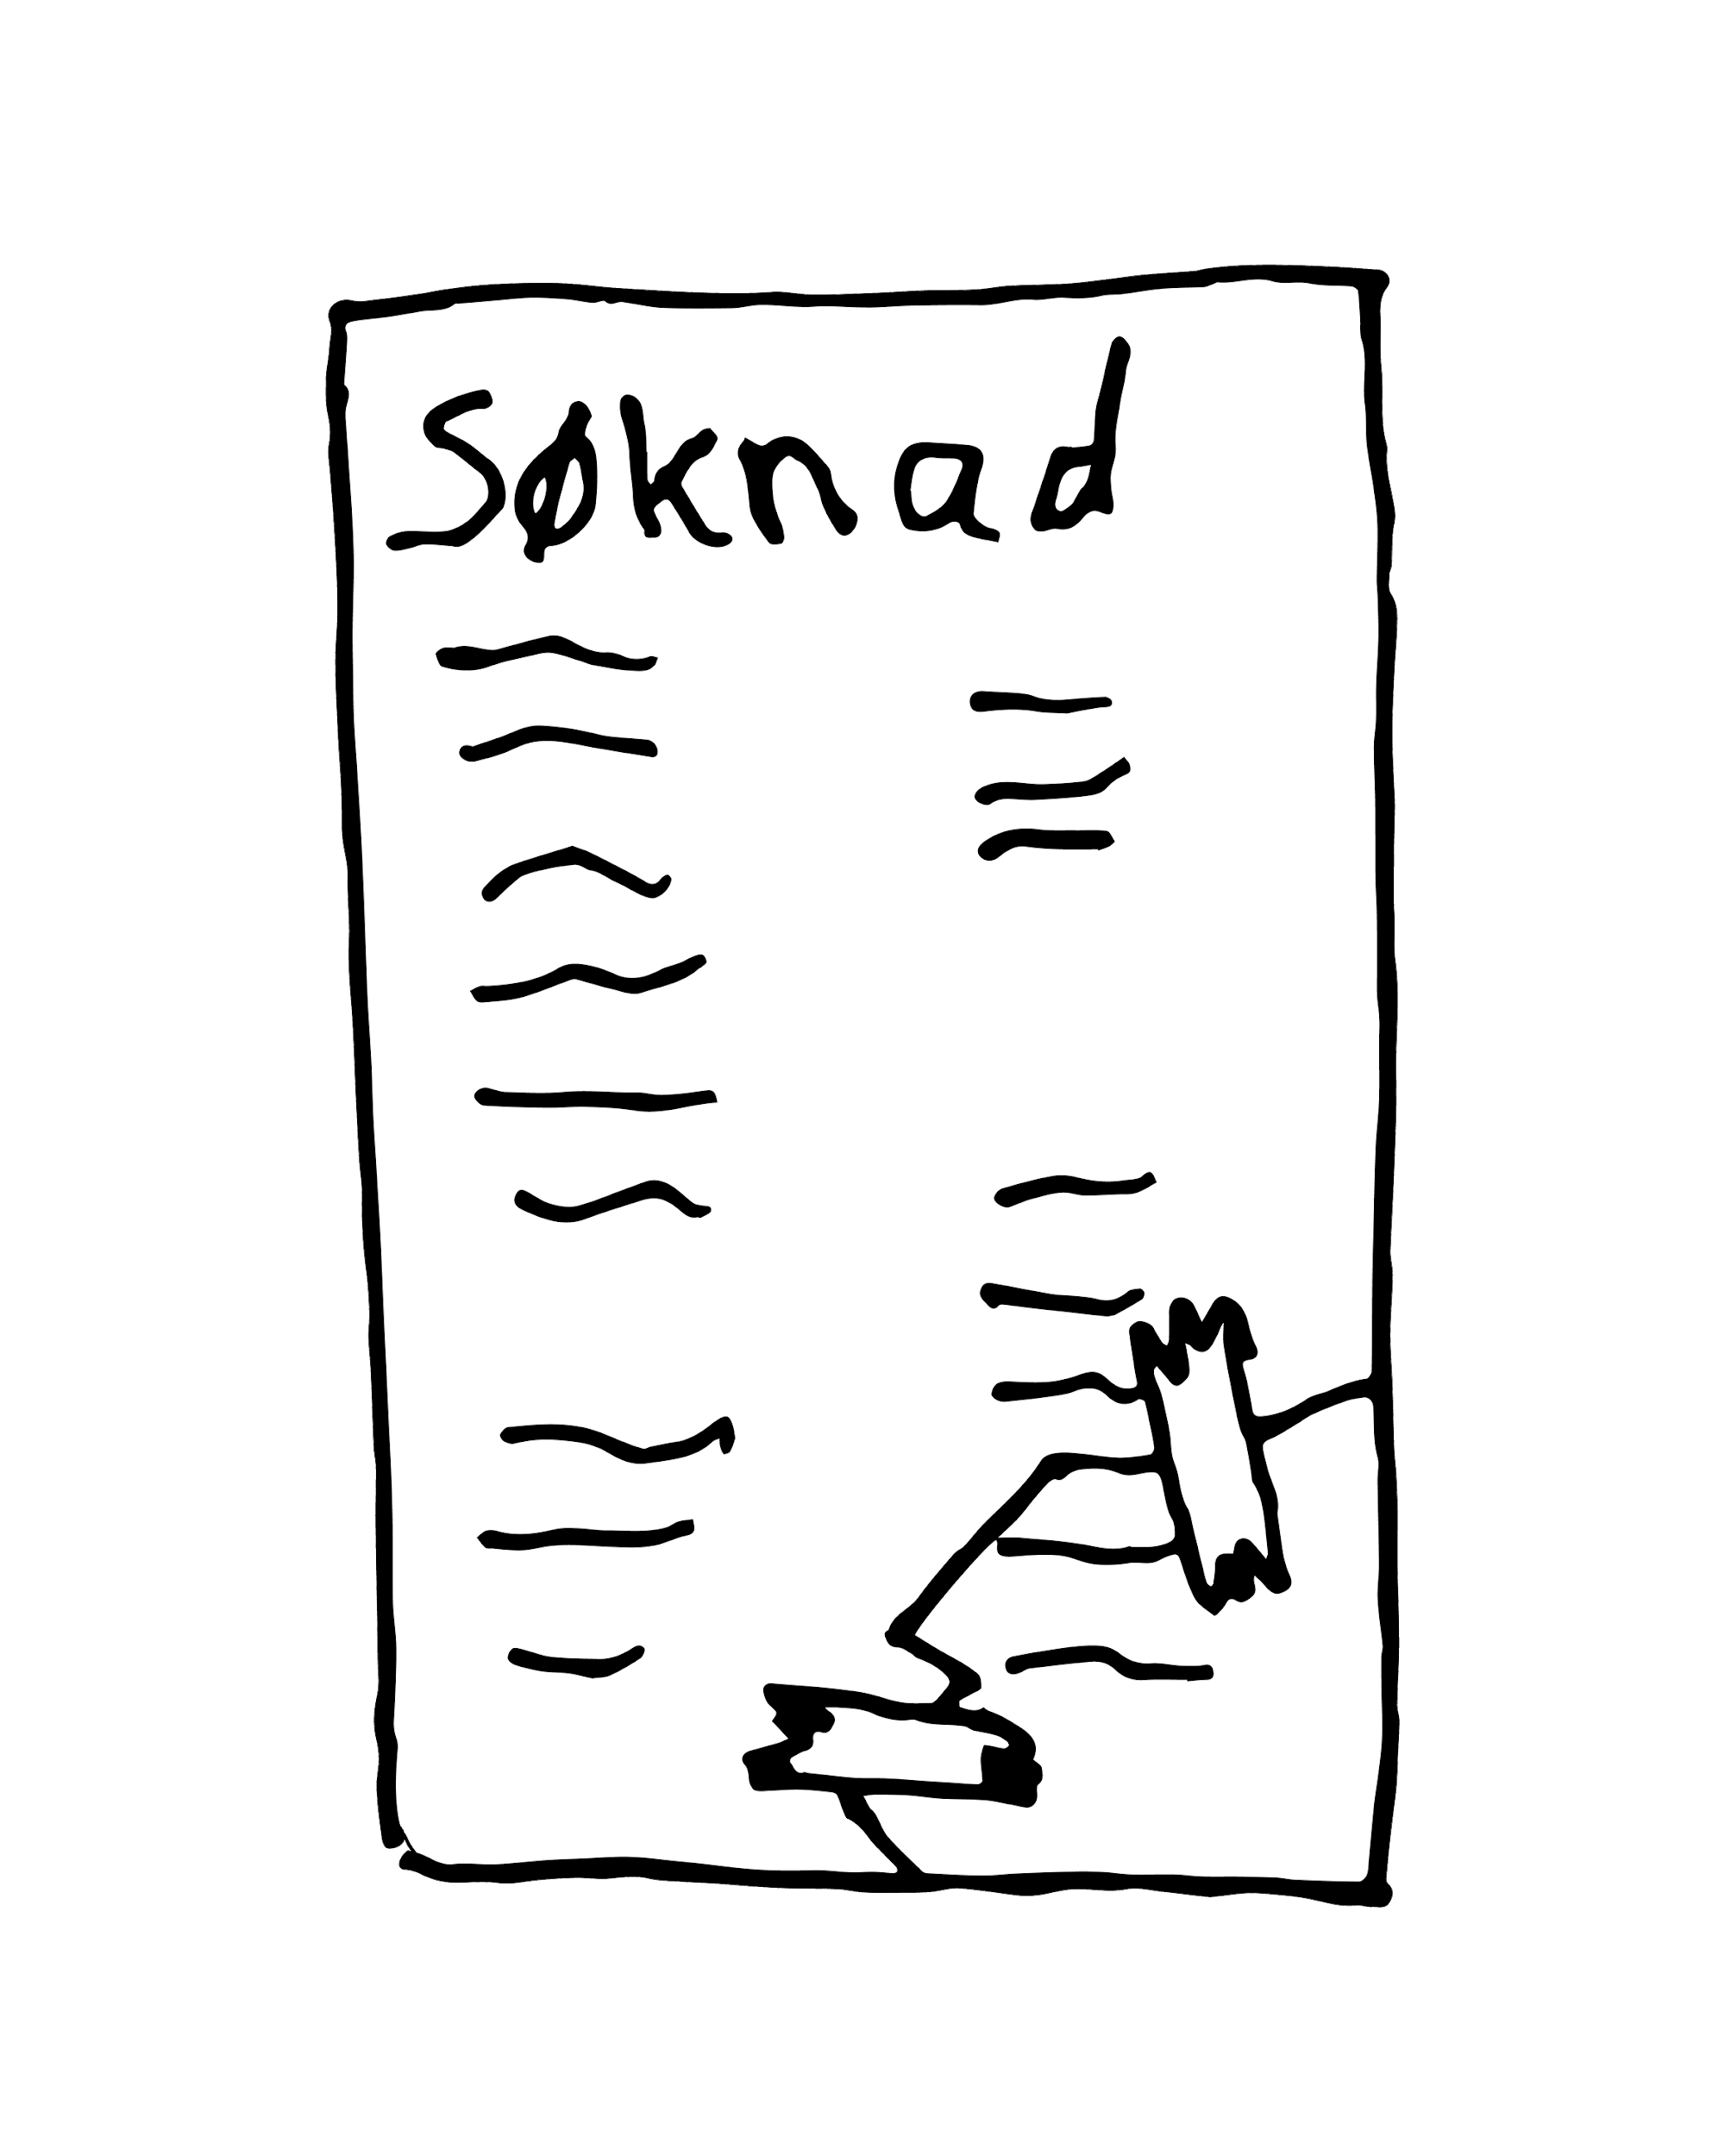 Søknad